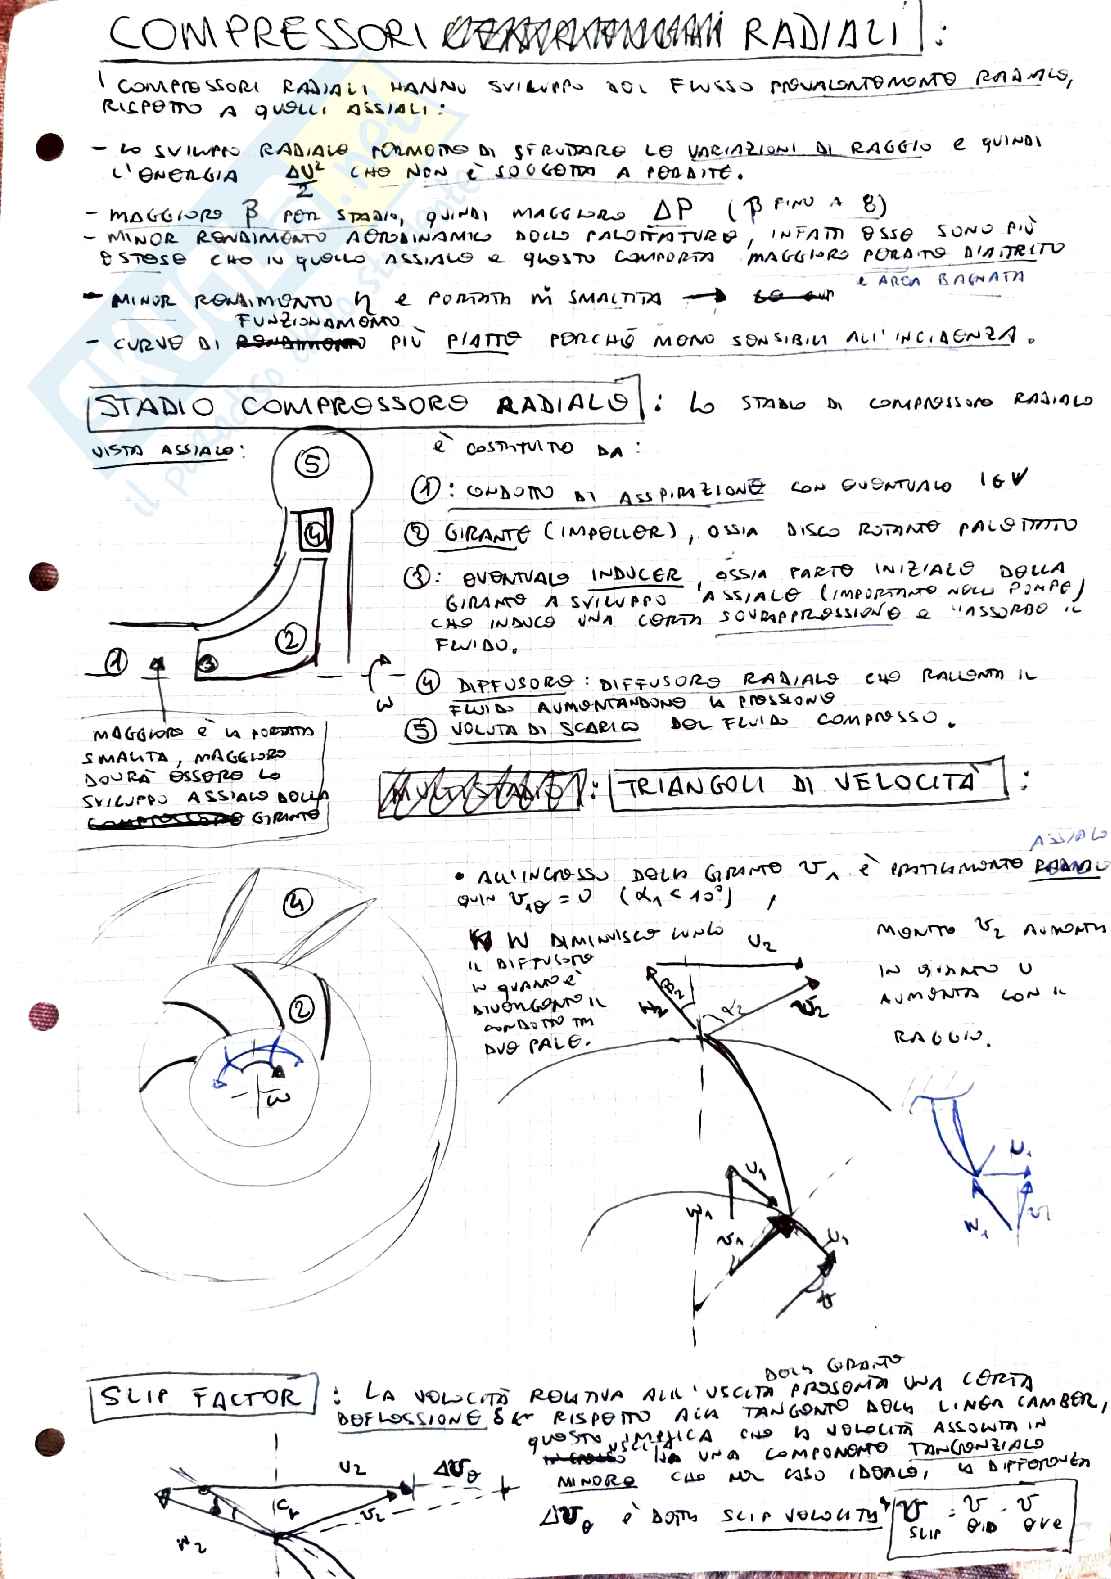 COMPRESSORI RADIALI :
I COMPRESSORI RADIALI HANNO SVILUPPO DEL FLUSSO PREVALENTEMENTE RADIALE,
RISPETTO A QUELLI ASSIALI:
- LO SVILUPPO RADIALE PERMETTE DI SFRUTTARE LE VARIAZIONI DI RAGGIO E QUINDI
L'ENERGIA ΔU²/2 CHE NON È SOGGETTA A PERDITE.
- MAGGIORE β PER STADIO, QUINDI MAGGIORE ΔP (β FINO A 8)
- MINOR RENDIMENTO AERODINAMICO DELLE PALETTATURE, INFATTI ESSE SONO PIÙ
ESTESE CHE IN QUELLE ASSIALE E QUESTO COMPORTA MAGGIORE PERDITE D'ATTRITO
E AREA BAGNATA
- MINOR RENDIMENTO η E PORTATA ṁ SMALTITA →
FUNZIONAMENTO
- CURVE DI RENDIMENTO PIÙ PIATTE PERCHÉ MENO SENSIBILI ALL'INCIDENZA.
STADIO COMPRESSORE RADIALE : LO STADIO DI COMPRESSORE RADIALE
VISTA ASSIALE: È COSTITUITO DA:
5
① : CONDOTTO DI ASPIRAZIONE CON EVENTUALE IGV
4
② GIRANTE (IMPELLER), OSSIA DISCO ROTANTE PALETTATO
③ : EVENTUALE INDUCER, OSSIA PARTE INIZIALE DELLA
GIRANTE A SVILUPPO ASSIALE (IMPORTANTE NELLE POMPE)
CHE INDUCE UNA CERTA SOVRAPPRESSIONE E "ASSORBE IL
FLUIDO.
2
1 3 ω
④ DIFFUSORE : DIFFUSORE RADIALE CHE RALLENTA IL
FLUIDO AUMENTANDONE LA PRESSIONE
⑤ VOLUTA DI SCARICO DEL FLUIDO COMPRESSO.
MAGGIORE È LA PORTATA
SMALTITA, MAGGIORE
DOVRÀ ESSERE LO
SVILUPPO ASSIALE DELLA
COMPRESSORE GIRANTE
MULTISTADIO : TRIANGOLI DI VELOCITÀ :
ASSIALE
• ALL'INGRESSO DELLA GIRANTE v₁ È PRATICAMENTE RADIALE
QUIN v₁θ = 0 (α₁ < 10°) ,
4
W DIMINUISCE LUNGO
IL DIFFUSORE
IN QUANTO È
DIVERGENTE IL
CONDOTTO TRA
DUE PALE.
U₂
W₂ β₂ α₂ v₂
MENTRE v₂ AUMENTA
IN QUANTO U
AUMENTA CON IL
RAGGIO.
2
ω
W₁ U₁
v₁ U₁
U₁
W₁ v₁
SLIP FACTOR : LA VELOCITÀ RELATIVA ALL'USCITA DELLA GIRANTE PRESENTA UNA CERTA
DEFLESSIONE δ RISPETTO ALLA TANGENTE DELLA LINEA CAMBER,
QUESTO IMPLICA CHE LA VELOCITÀ ASSOLUTA IN
USCITA HA UNA COMPONENTE TANGENZIALE
MINORE CHE NEL CASO IDEALE, LA DIFFERENZA
Δvθ È DETTA SLIP VELOCITY v SLIP = v θID - v θRE
U₂ Δvθ
δ Cr v₂
W₂